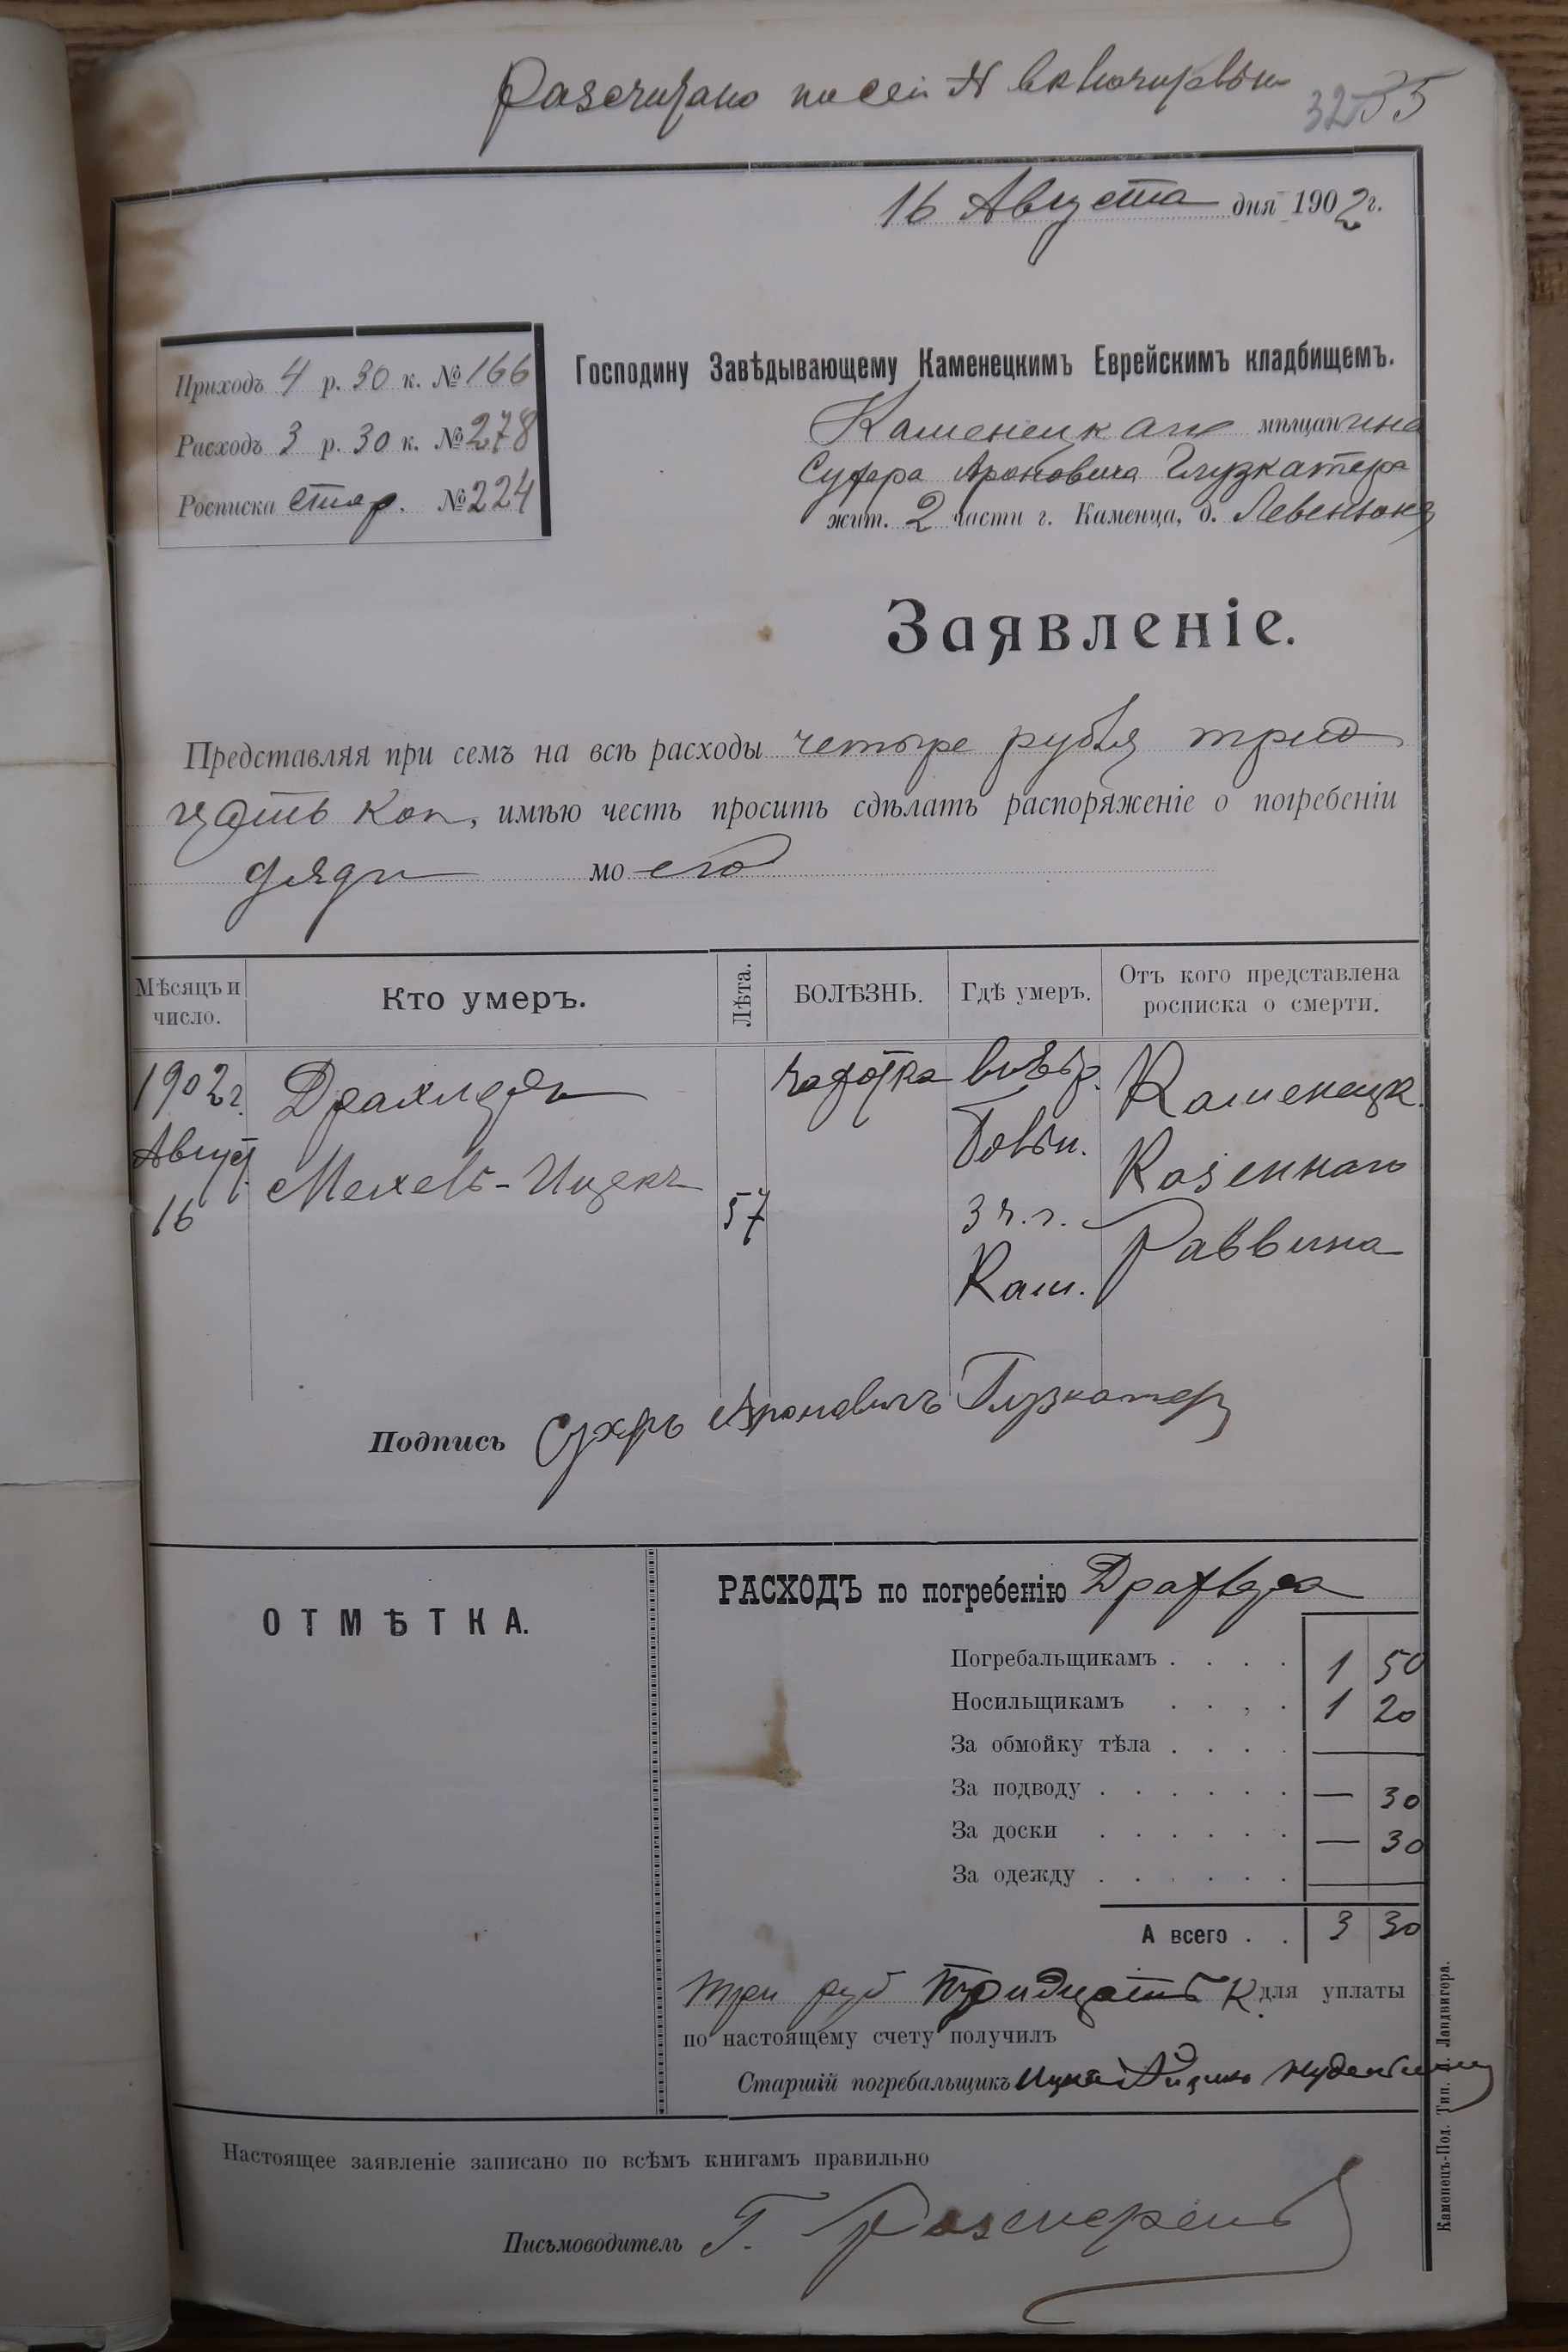 Разсчитано по сей № включительн
32 35
16 Августа дня 1902 г.
Приходъ 4 р. 30 к. № 166
Расходъ 3 р. 30 к. № 278
Росписка стар. № 224
Господину Завѣдывающему Каменецкимъ Еврейскимъ кладбищемъ.
Каменецкаго мѣщанина
Сухера Ароновича Глузкатера
жит. 2 части г. Каменца, д. Левензона
Заявленіе.
Представляя при семъ на всѣ расходы четыре рубля трид
цать коп, имѣю честь просить сдѣлать распоряженіе о погребеніи
дяди моего
Мѣсяцъ и число. Кто умеръ. Лѣта. БОЛѢЗНЬ. Гдѣ умеръ. Отъ кого представлена росписка о смерти.
1902 г. Драхлеръ чахотка въ Каменецк.
Август Мехель-Ицекъ 57 Казеннаго
16 3 ч. г. Раввина
Кам.
Подпись Сухеръ Ароновичъ Глузкатеръ
ОТМѢТКА.
РАСХОДЪ по погребенію Драхлера
Погребальщикамъ . . . . 1 50
Носильщикамъ . . , . 1 20
За обмойку тѣла . . . . —
За подводу . . . . . . — 30
За доски . . . . . . — 30
За одежду . . . . . . —
А всего . . 3 30
три руб тридцать к для уплаты
по настоящему счету получилъ
Старшій погребальщикъ
Настоящее заявленіе записано по всѣмъ книгамъ правильно
Письмоводитель Г.
Каменецъ-Под. Тип. Ландвигера.